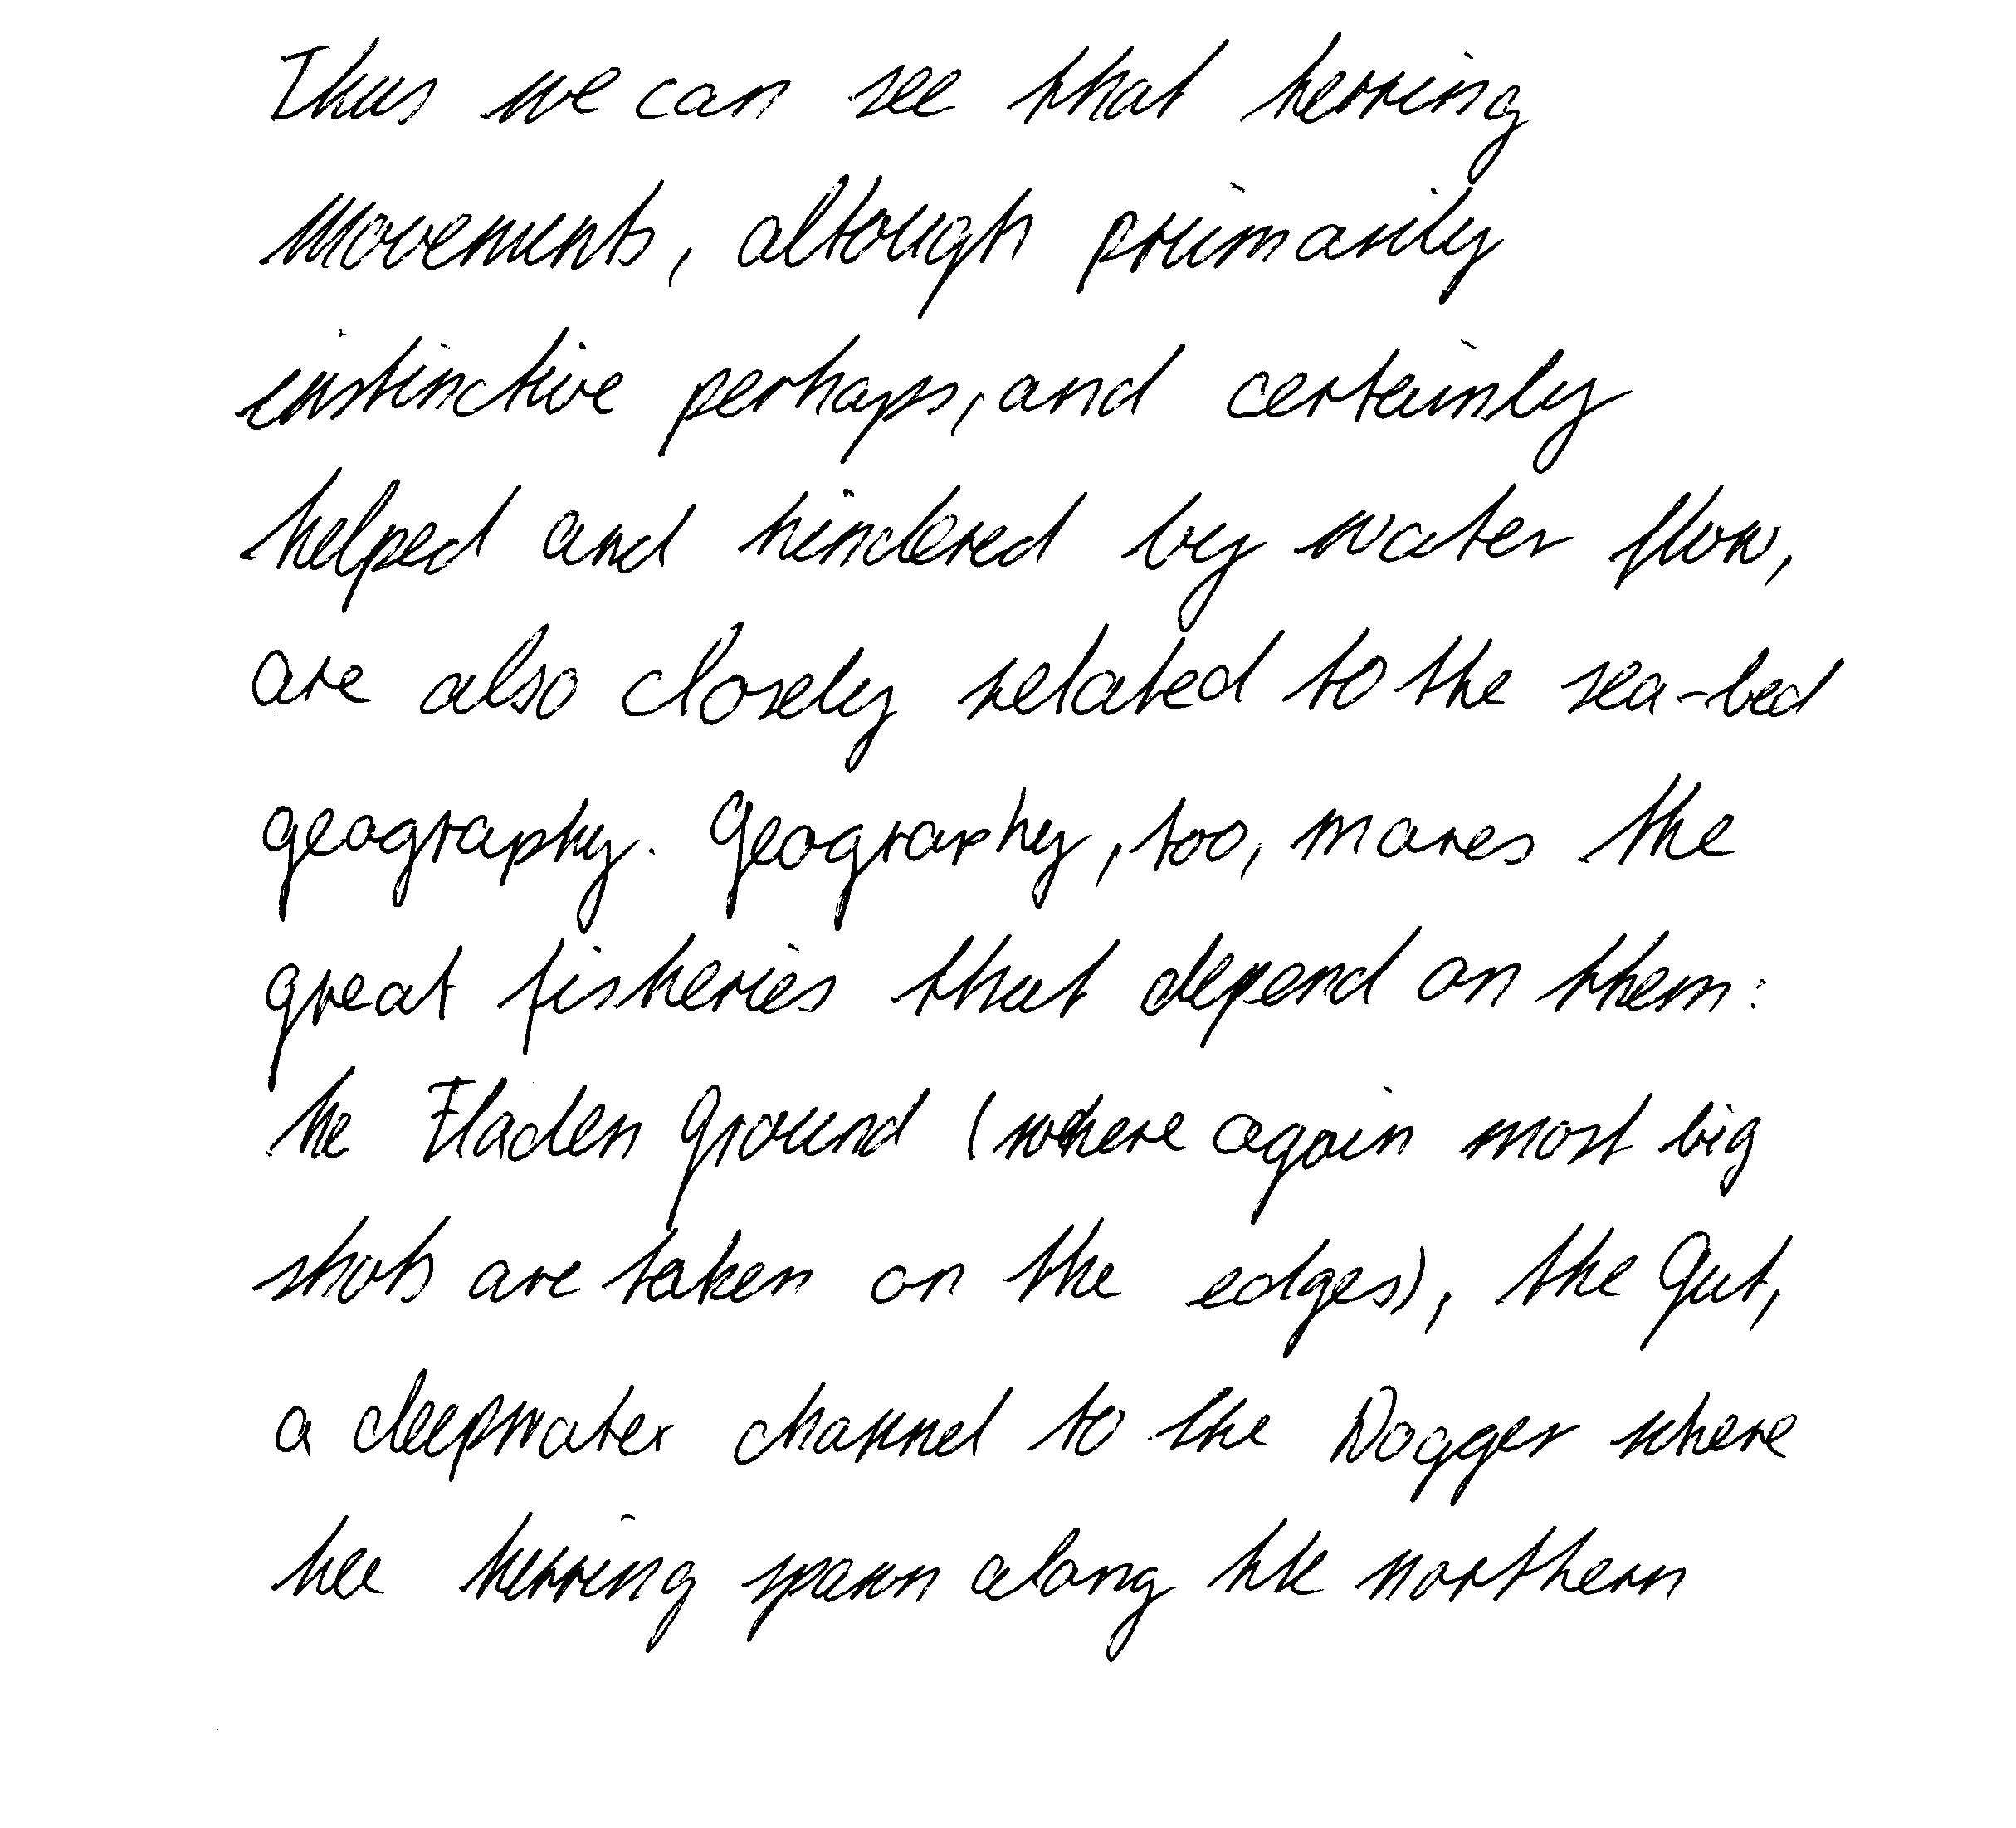 Thus we can see that herring
movements, altough primarily
instinctive perhaps, and certainly
helped and hindered by water flow,
are also closely related to the sea-bed
geography. Geography, too, mares the
great fisheries that depend on them:
the Fladen Ground (where again most big
shots are taken on the edges), the Gut,
a deepwater channel to the Dogger where
the herring spawn along the northern